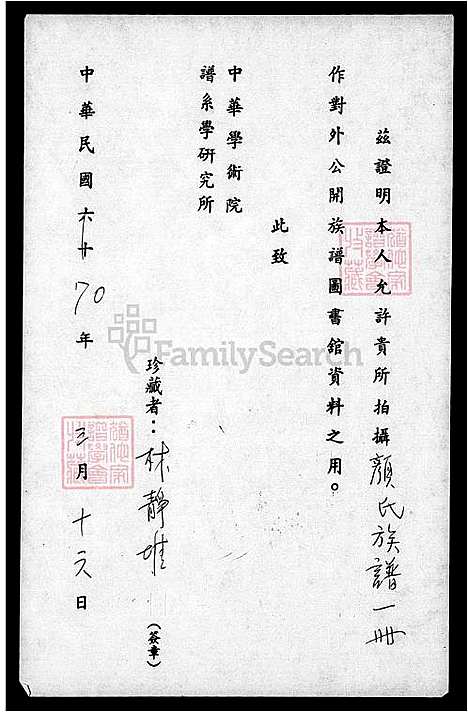 茲證明本人允許貴所拍攝顏氏族譜一冊
作對外公開族譜圖書館資料之用。
此致
中華學術院
譜系學研究所
珍藏者：林靜 (簽章)
中華民國六十70年三月十六日
FamilySearch